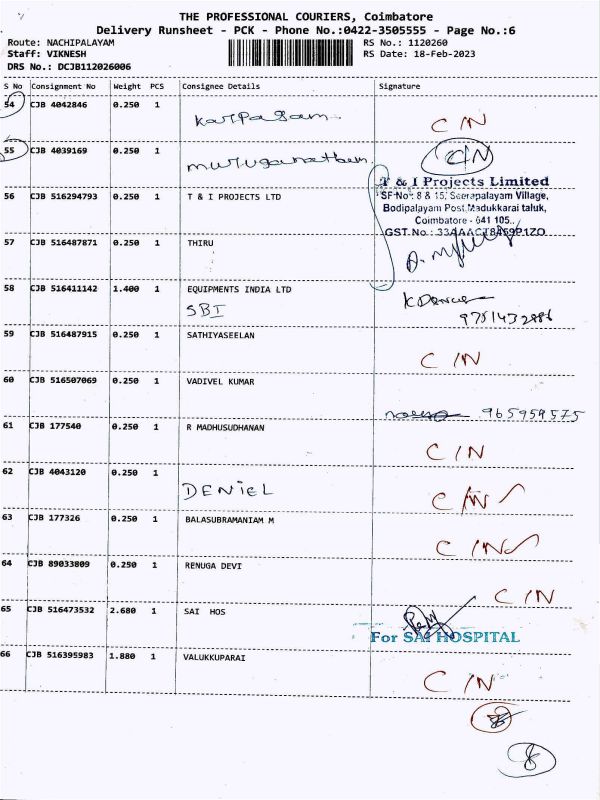 THE PROFESSIONAL COURIERS, Coimbatore
Delivery Runsheet - PCK - Phone No.:0422-3505555 - Page No.:6
Route: NACHIPALAYAM
RS No.: 1120260
Staff: VIKNESH
RS Date: 18-Feb-2023
DRS No.: DCJB112026006
S No Consignment No Weight PCS Consignee Details Signature
54 CJB 4042846 0.250 1 Karpagam C/N
55 CJB 4039169 0.250 1 Muruganatham C/N
T & I Projects Limited
56 CJB 516294793 0.250 1 T & I PROJECTS LTD SF No: 8 & 15, Seerapalayam Village,
Bodipalayam Post, Madukkarai taluk,
Coimbatore - 641 105..
GST.No.: 33AAACT8459P1ZO
57 CJB 516487871 0.250 1 THIRU
58 CJB 516411142 1.400 1 EQUIPMENTS INDIA LTD
SBI
59 CJB 516487915 0.250 1 SATHIYASEELAN C/N
60 CJB 516507069 0.250 1 VADIVEL KUMAR
965959575
61 CJB 177540 0.250 1 R MADHUSUDHANAN C/N
62 CJB 4043120 0.250 1 DENIEL C/N
63 CJB 177326 0.250 1 BALASUBRAMANIAM M C/N
64 CJB 89033809 0.250 1 RENUGA DEVI C/N
65 CJB 516473532 2.680 1 SAI HOS
For SAI HOSPITAL
66 CJB 516395983 1.880 1 VALUKKUPARAI C/N
8